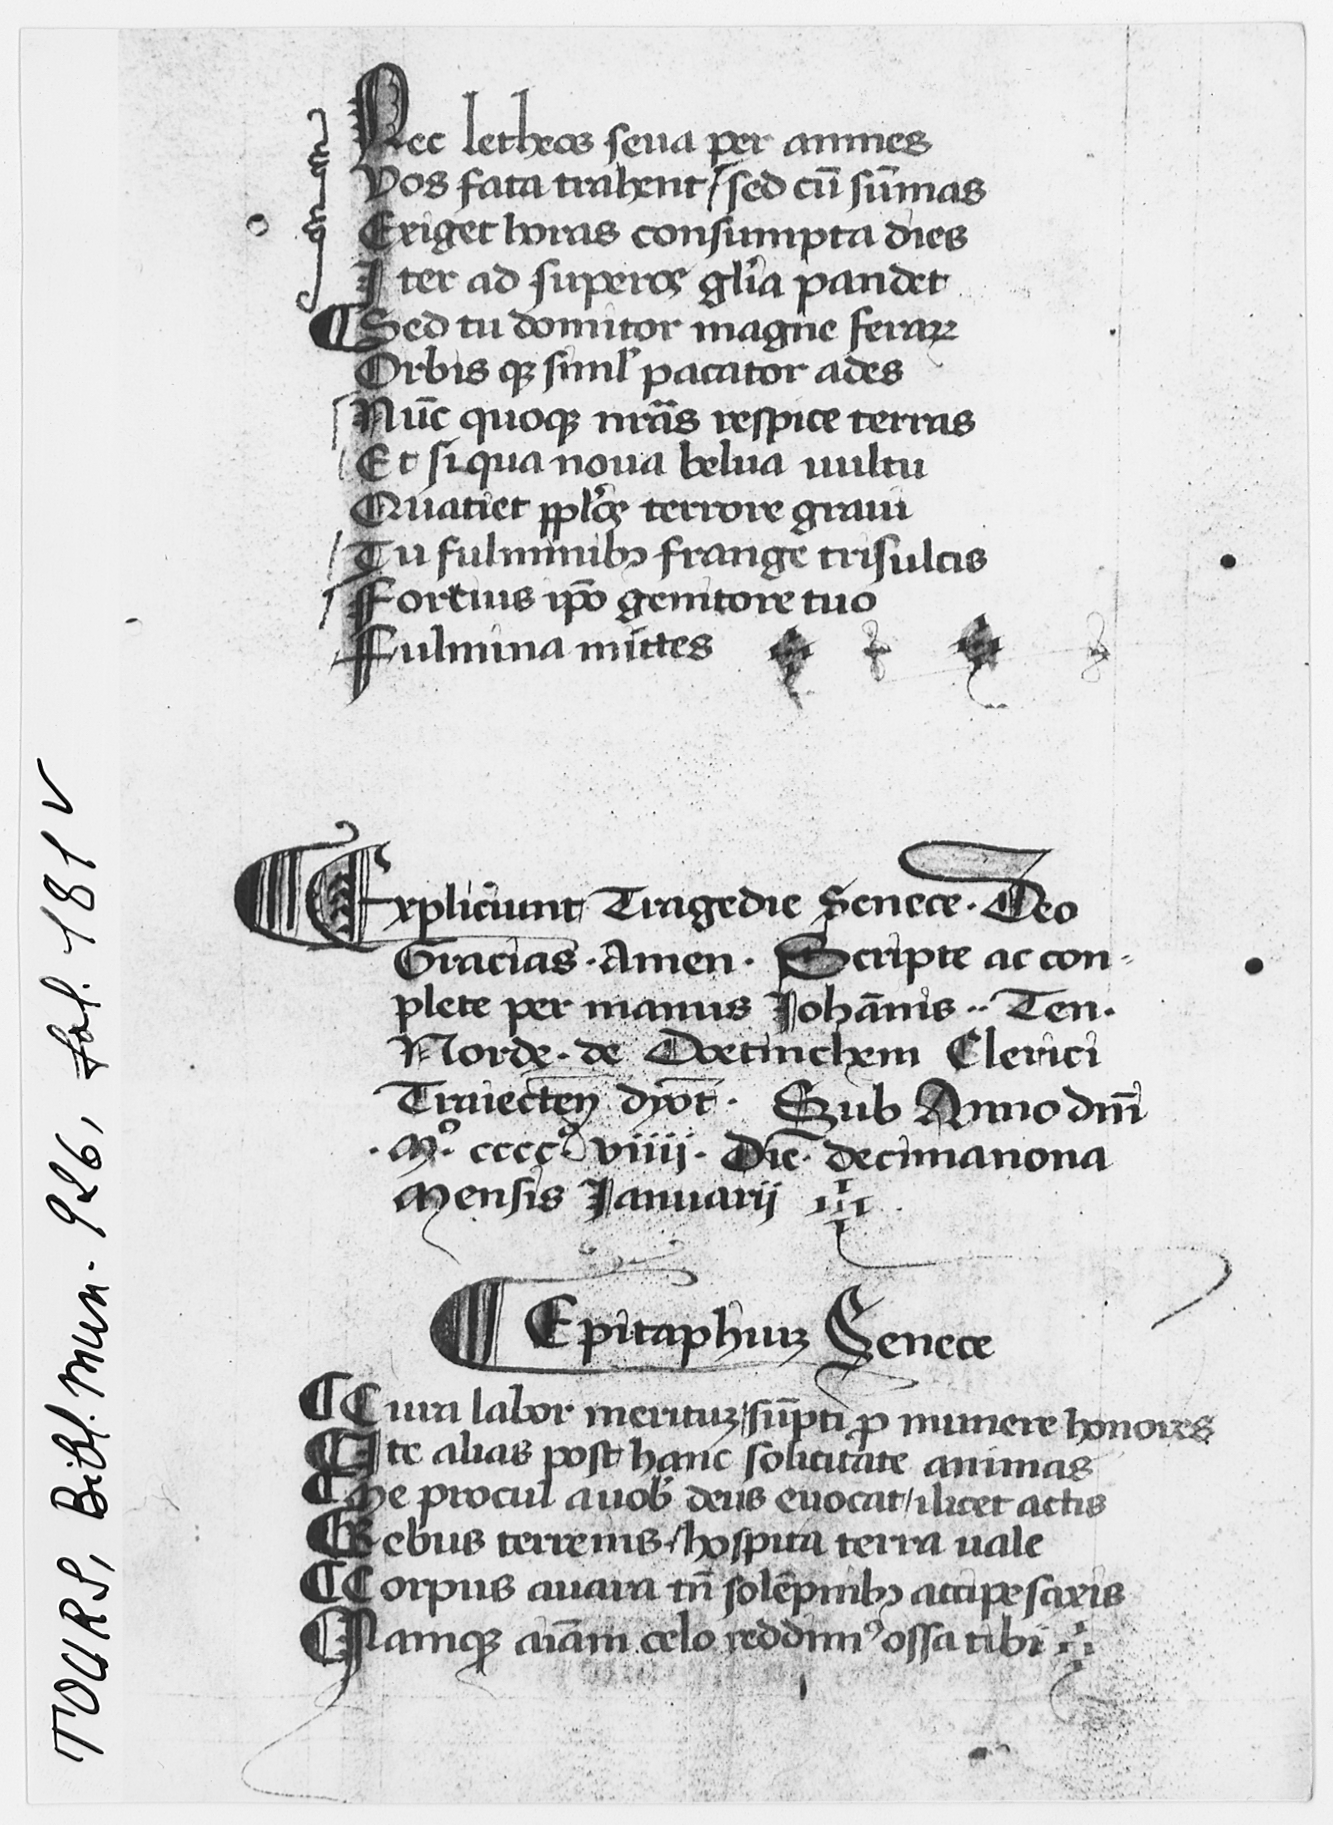 Nec letheos seua per amnes
Vos fata trahent / sed cū sūmas
Exiget horas consumpta dies
Iter ad superos gl'ia pandet
¶ Sed tu domitor magne feraꝝ
Orbis qꝫ siml' pacator ades
Nūc quoqꝫ nr̄as respice terras
Et si qua noua belua uultu
Quatiet ppl'os terrore graui
Tu fulminibꝫ frange trisulcis
Fortius ip̄o genitore tuo
Fulmina mittes
¶ Expliciunt Tragedie Senece. Deo
Gracias. Amen. Scripte ac con-
plete per manus Johānis .. Ten.
Norde. de Doetinchem Clerici
Traiecteñ dyoc̄. Sub Anno dn̄i
.Mº. ccccº. viiij. Die. decimanona
Mensis Januarij
¶ Epitaphiuꝫ Senece
¶ Cura labor merituꝫ / sūpti ꝓ munere honores
¶ Ite alias post hanc solicitate animas
¶ Me procul a uob' deus euocat / ilicet actis
¶ Rebus terrenis / hospita terra uale
¶ Corpus auara tn̄ solēpnibꝫ accipe saxis
¶ Namqꝫ aīam celo reddimꝰ ossa tibi
TOURS, Bibl. Mun. 926, fol. 181 v